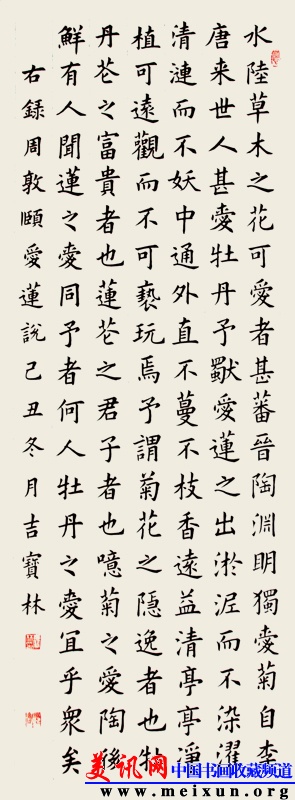 水陸草木之花可愛者甚蕃晉陶淵明獨愛菊自李
唐来世人甚愛牡丹予獨愛蓮之出淤泥而不染濯
清漣而不妖中通外直不蔓不枝香遠益清亭亭淨
植可遠觀而不可褻玩焉予謂菊花之隱逸者也牡
丹花之富貴者也蓮花之君子者也噫菊之愛陶後
鮮有人聞蓮之愛同予者何人牡丹之愛宜乎衆矣
右録周敦頤愛蓮説己丑冬月吉寶林
美讯网 中国书画收藏频道
www.meixun.net